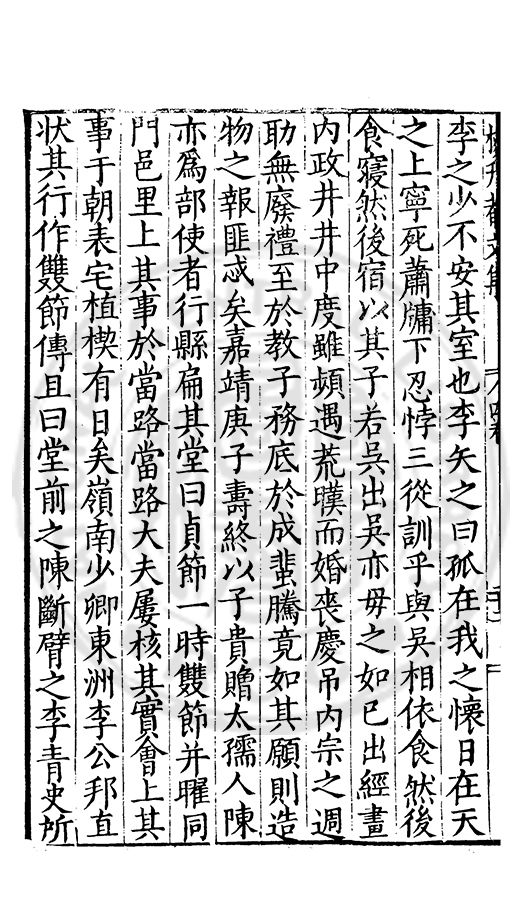 李之少不安其室也李矢之曰孤在我之懷日在天
之上寧死蕭牗下忍悖三從訓乎與吳相依食然後
食寢然後宿以其子若吳出吳亦毋之如已出經畫
内政井井中度雖頻遇荒暵而婚喪慶吊内宗之週
助無廢禮至於教子務底於成蜚騰竟如其願則造
物之報匪忒矣嘉靖庚子壽終以子貴贈太孺人陳
亦爲部使者行縣扁其堂曰貞節一時雙節并曜同
門邑里上其事於當路當路大夫屢核其實會上其
事于朝表宅植楔有日矣嶺南少卿東洲李公邦直
狀其行作雙節傳且曰堂前之陳斷臂之李青史所